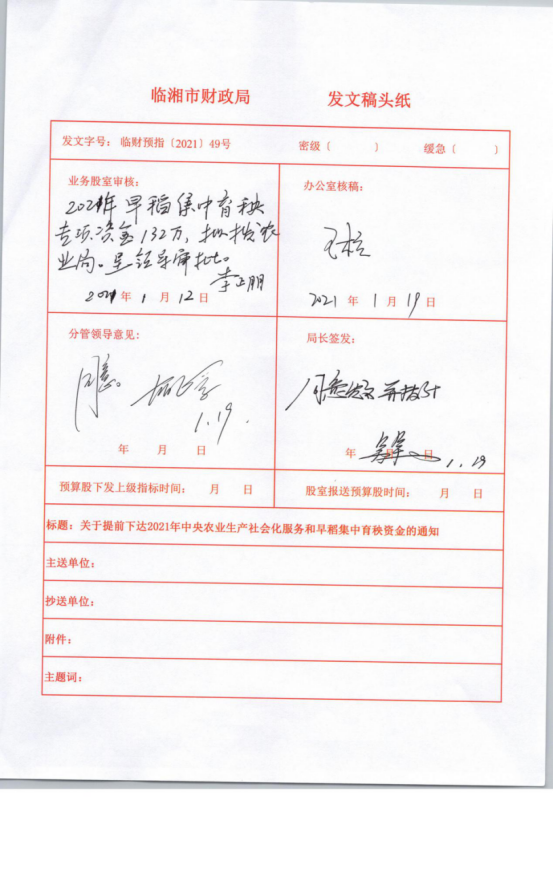 临湘市财政局 发文稿头纸
发文字号： 临财预指〔2021〕49号 密级〔 〕 缓急〔 〕
业务股室审核：
2021年早稻集中育秧
专项资金132万，拟拨农
业局。呈领导审批。
李正朋
2021年1月12日
办公室核稿：
2021年1月19日
分管领导意见：
同意。
1.19.
年 月 日
局长签发：
同意
年 月 日
1.19
预算股下发上级指标时间： 月 日
股室报送预算股时间： 月 日
标题：关于提前下达2021年中央农业生产社会化服务和早稻集中育秧资金的通知
主送单位：
抄送单位：
附件：
主题词：